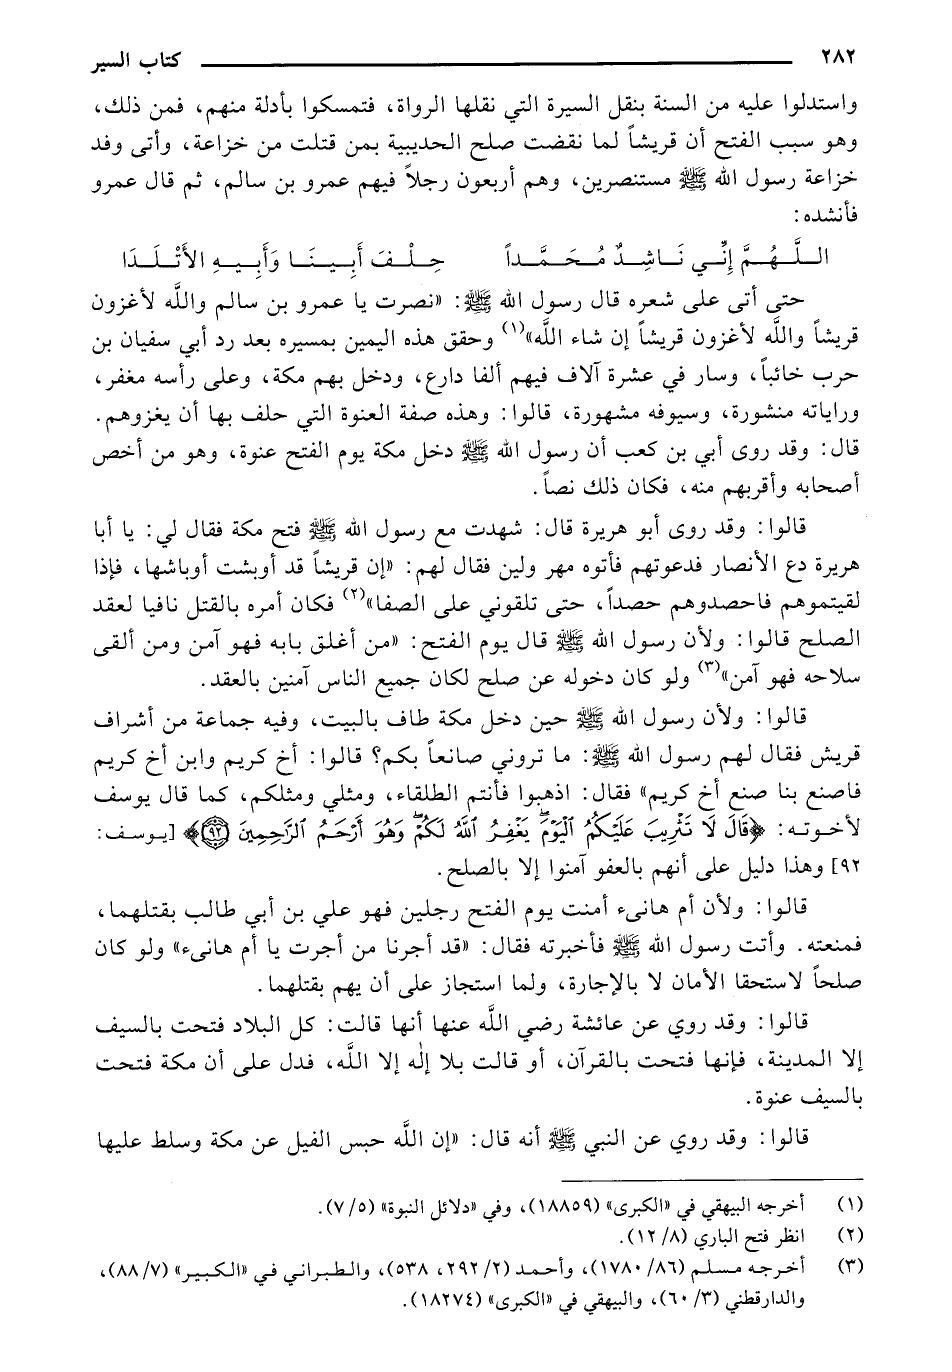 ٢٨٢ كتاب السير
واستدلوا عليه من السنة بنقل السيرة التي نقلها الرواة، فتمسكوا بأدلة منهم، فمن ذلك،
وهو سبب الفتح أن قريشاً لما نقضت صلح الحديبية بمن قتلت من خزاعة، وأتى وفد
خزاعة رسول الله ﷺ مستنصرين، وهم أربعون رجلاً فيهم عمرو بن سالم، ثم قال عمرو
فأنشده:
اللَّهُمَّ إِنِّي نَاشِدٌ مُحَمَّداً حِلْفَ أَبِينَا وَأَبِيهِ الأَتْلَدَا
حتى أتى على شعره قال رسول الله ﷺ: «نصرت يا عمرو بن سالم واللَّه لأغزون
قريشاً واللَّه لأغزون قريشاً إن شاء اللَّه»(١) وحقق هذه اليمين بمسيره بعد رد أبي سفيان بن
حرب خائباً، وسار في عشرة آلاف فيهم ألفا دارع، ودخل بهم مكة، وعلى رأسه مغفر،
وراياته منشورة، وسيوفه مشهورة، قالوا: وهذه صفة العنوة التي حلف بها أن يغزوهم.
قال: وقد روى أبي بن كعب أن رسول الله ﷺ دخل مكة يوم الفتح عنوة، وهو من أخص
أصحابه وأقربهم منه، فكان ذلك نصاً.
قالوا: وقد روى أبو هريرة قال: شهدت مع رسول الله ﷺ فتح مكة فقال لي: يا أبا
هريرة دع الأنصار فدعوتهم فأتوه مهر ولين فقال لهم: «إن قريشاً قد أوبشت أوباشها، فإذا
لقيتموهم فاحصدوهم حصداً، حتى تلقوني على الصفا»(٢) فكان أمره بالقتل نافيا لعقد
الصلح قالوا: ولأن رسول الله ﷺ قال يوم الفتح: «من أغلق بابه فهو آمن ومن ألقى
سلاحه فهو آمن»(٣) ولو كان دخوله عن صلح لكان جميع الناس آمنين بالعقد.
قالوا: ولأن رسول الله ﷺ حين دخل مكة طاف بالبيت، وفيه جماعة من أشراف
قريش فقال لهم رسول الله ﷺ: ما تروني صانعاً بكم؟ قالوا: أخ كريم وابن أخ كريم
فاصنع بنا صنع أخ كريم» فقال: اذهبوا فأنتم الطلقاء، ومثلي ومثلكم، كما قال يوسف
لأخوته: ﴿قَالَ لَا تَثْرِيبَ عَلَيْكُمُ ٱلْيَوْمَ ۖ يَغْفِرُ ٱللَّهُ لَكُمْ ۖ وَهُوَ أَرْحَمُ ٱلرَّٰحِمِينَ ٩٢﴾ [يوسف:
٩٢] وهذا دليل على أنهم بالعفو آمنوا إلا بالصلح.
قالوا: ولأن أم هانىء أمنت يوم الفتح رجلين فهو علي بن أبي طالب بقتلهما،
فمنعته. وأتت رسول الله ﷺ فأخبرته فقال: «قد أجرنا من أجرت يا أم هانىء» ولو كان
صلحاً لاستحقا الأمان لا بالإجارة، ولما استجاز على أن يهم بقتلهما.
قالوا: وقد روي عن عائشة رضي اللَّه عنها أنها قالت: كل البلاد فتحت بالسيف
إلا المدينة، فإنها فتحت بالقرآن، أو قالت بلا إلٰه إلا اللَّه، فدل على أن مكة فتحت
بالسيف عنوة.
قالوا: وقد روي عن النبي ﷺ أنه قال: «إن اللَّه حبس الفيل عن مكة وسلط عليها
(١) أخرجه البيهقي في «الكبرى» (١٨٨٥٩)، وفي «دلائل النبوة» (٧/٥).
(٢) انظر فتح الباري (١٢/٨).
(٣) أخرجه مسلم (١٧٨٠/٨٦)، وأحمد (٢٩٢/٢، ٥٣٨)، والطبراني في «الكبير» (٨٨/٧)،
والدارقطني (٦٠/٣)، والبيهقي في «الكبرى» (١٨٢٧٤).